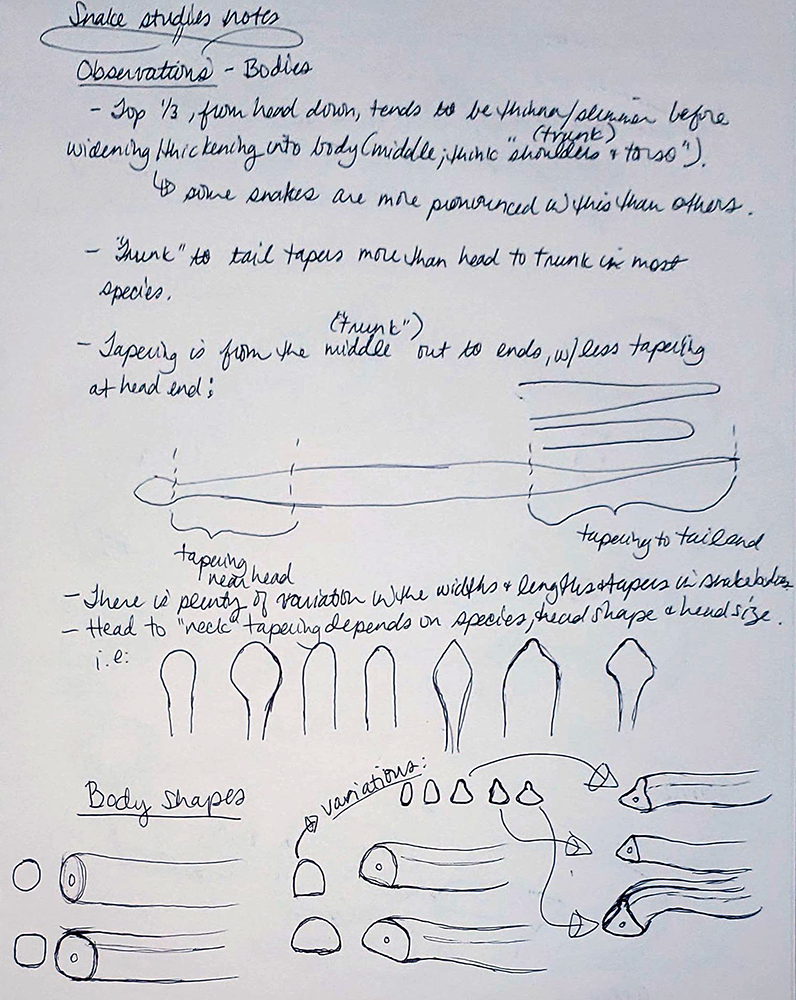 Snake studies notes
Observations - Bodies
- Top 1/3, from head down, tends to be thinner/slimmer before
widening/thickening into body (middle; think "shoulders & torso").
(trunk)
↳ some snakes are more pronounced w/ this than others.
- "Trunk" to tail tapers more than head to trunk in most
species.
("trunk")
- Tapering is from the middle out to ends, w/ less tapering
at head end:
tapering
near head
tapering to tail end
- There is plenty of variation w/ the widths & lengths & tapers in snake bodies
- Head to "neck" tapering depends on species, head shape & head size.
i.e:
Body shapes
variations: